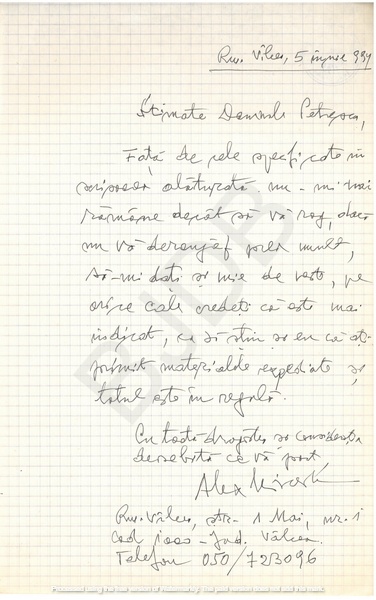 Rm. Vâlcea, 5 iunie 994
Stimate Domnule Petrescu,
Față de cele specificate în
scrisoarea alăturată nu-mi mai
rămâne decât să vă rog, dacă
nu vă deranjez prea mult,
să-mi dați și mie de veste, pe
orice cale credeți că este mai
indicat, ca să știu și eu că ați
primit materialele expediate și
totul este în regulă.
Cu toată dragostea și considerația
deosebită ce vă port,
Alex
Rm. Vâlcea, str. 1 Mai, nr. 1
cod 1000 - Jud. Vâlcea.
Telefon 050/723096
BJDB